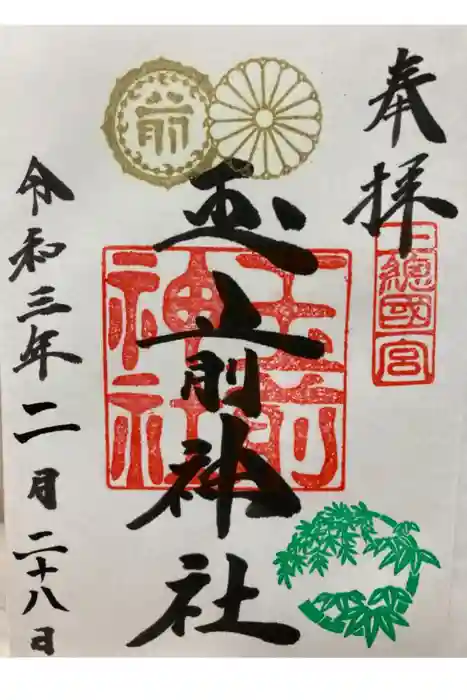 奉拝
上總國一宮
前
玉前神社
玉前神社
令和三年二月二十八日